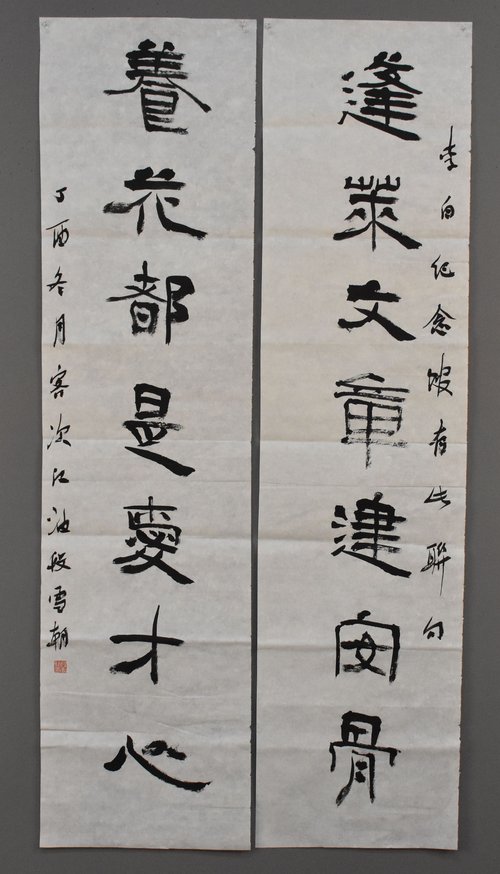 李白纪念馆有此聯句
蓬萊文章建安骨
養花都是愛才心
丁酉冬月客次江油段雪朝